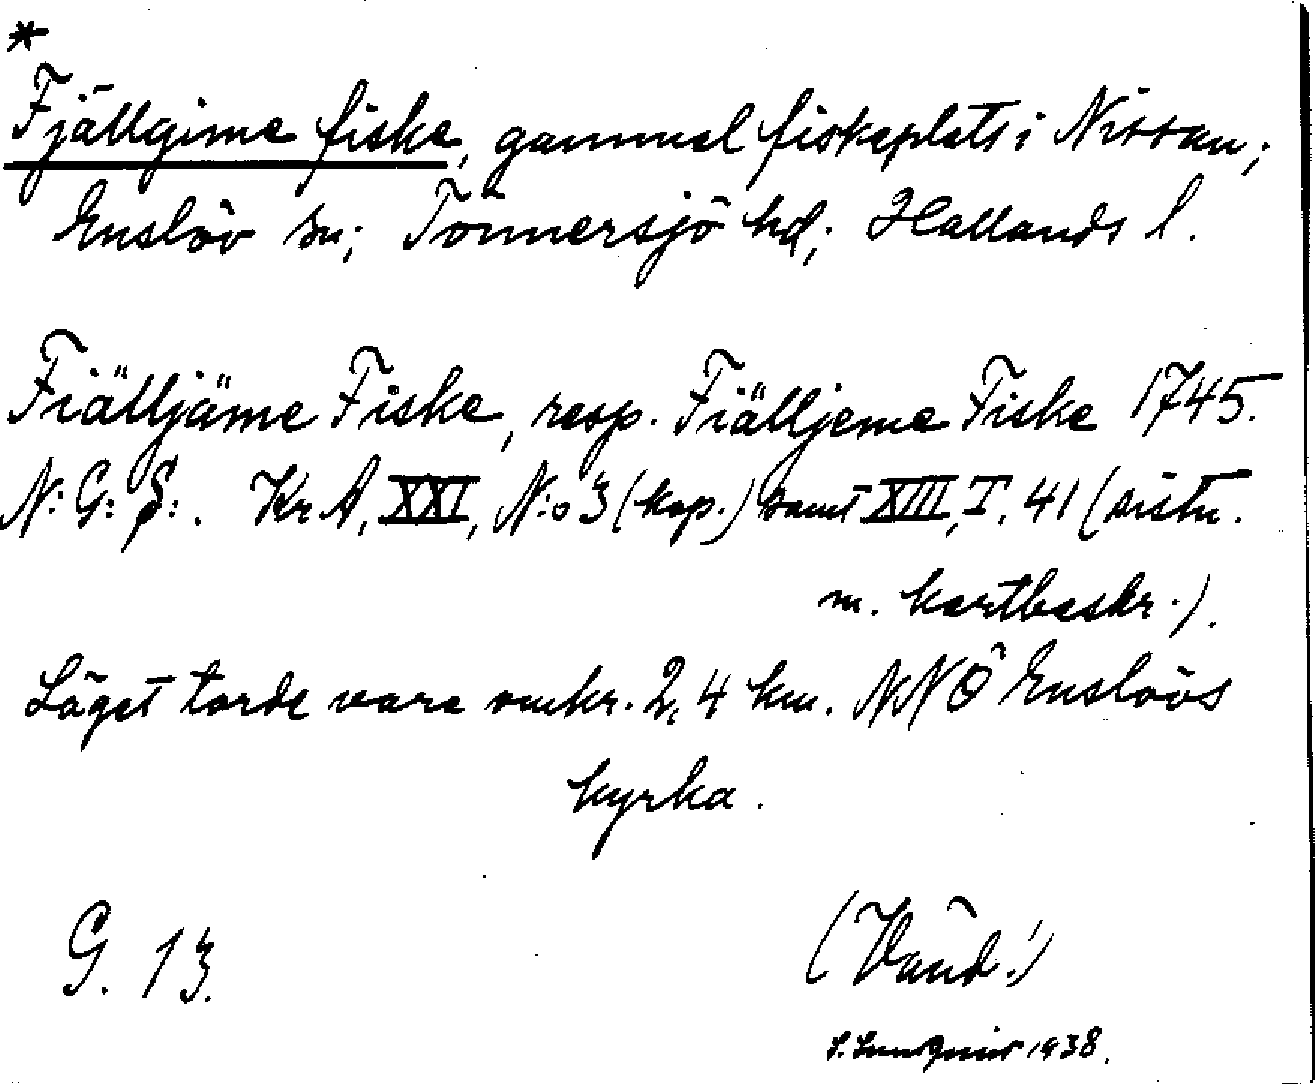 *
Fjällgime fiske, gammal fiskeplats i Nissan;
Enslöv sn; Tönnersjö hd; Hallands l.
Fiälljäme Fiske, resp. Fiälljeme Fiske 1745.
N:G:S:. Kr A, XXI, N:o 3 (kop.) samt XIII, I, 41 (sistn.
m. kartbeskr.).
Läget torde vara omkr. 2,4 km. NNÖ Enslövs
kyrka.
G. 13.
(Vänd!)
S. Lundquist 1938.